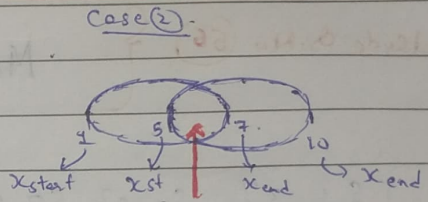 Case (2).
1 5 7. 10
xstart xst xend xend